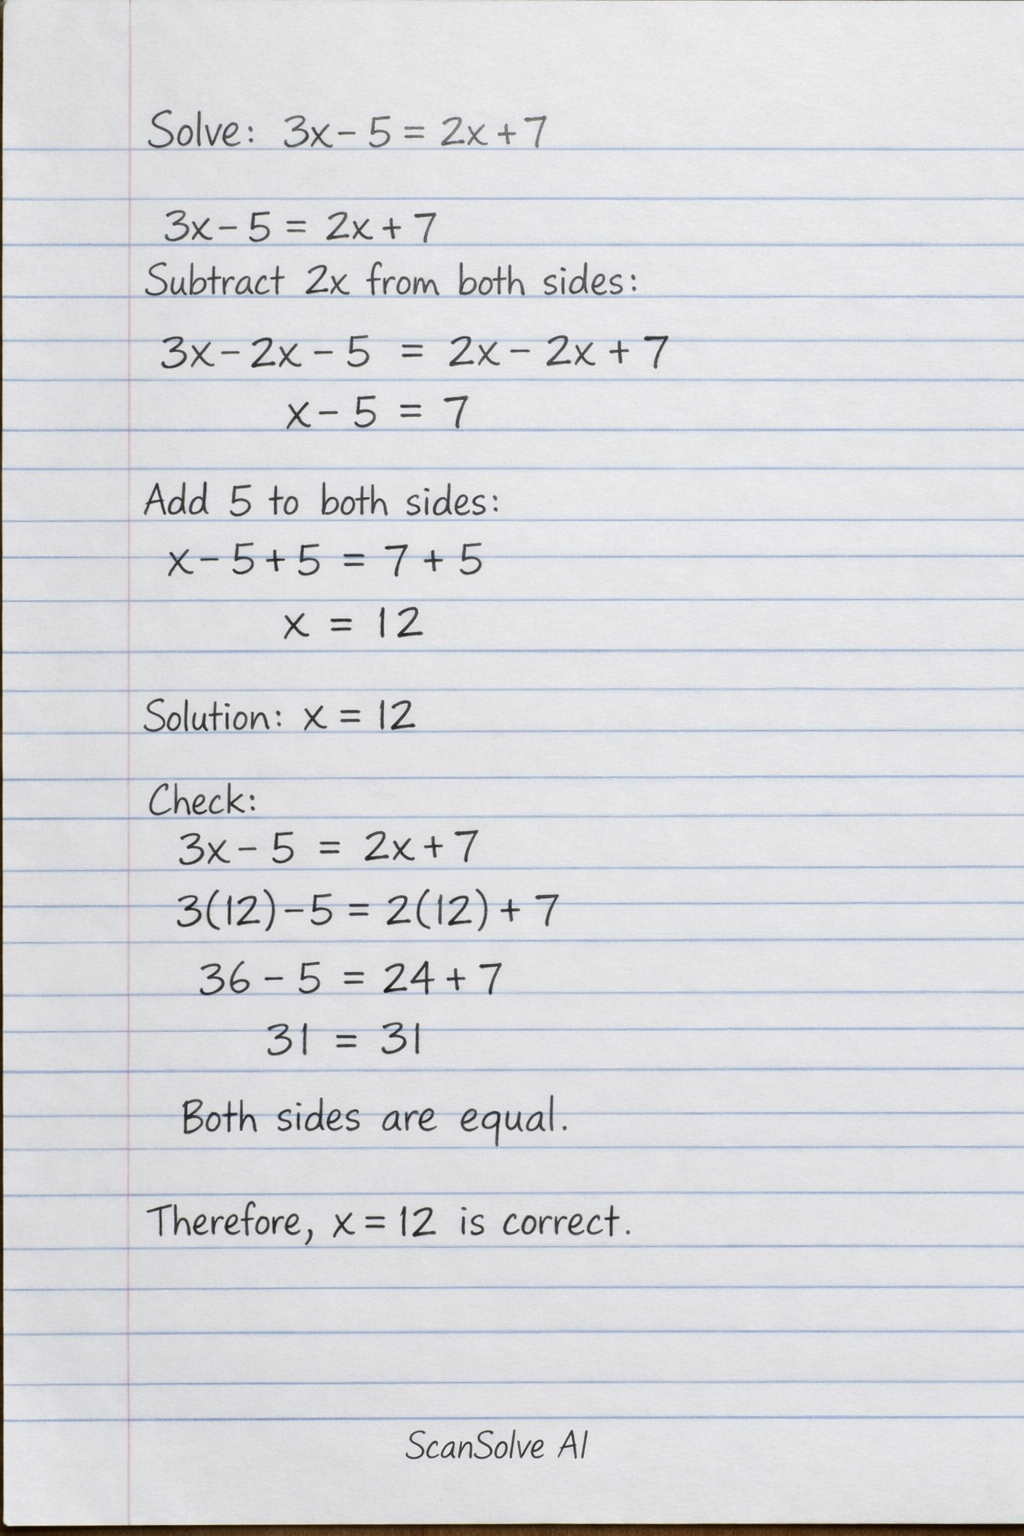 Solve: 3x - 5 = 2x + 7
3x - 5 = 2x + 7
Subtract 2x from both sides:
3x - 2x - 5 = 2x - 2x + 7
x - 5 = 7
Add 5 to both sides:
x - 5 + 5 = 7 + 5
x = 12
Solution: x = 12
Check:
3x - 5 = 2x + 7
3(12) - 5 = 2(12) + 7
36 - 5 = 24 + 7
31 = 31
Both sides are equal.
Therefore, x = 12 is correct.
ScanSolve AI